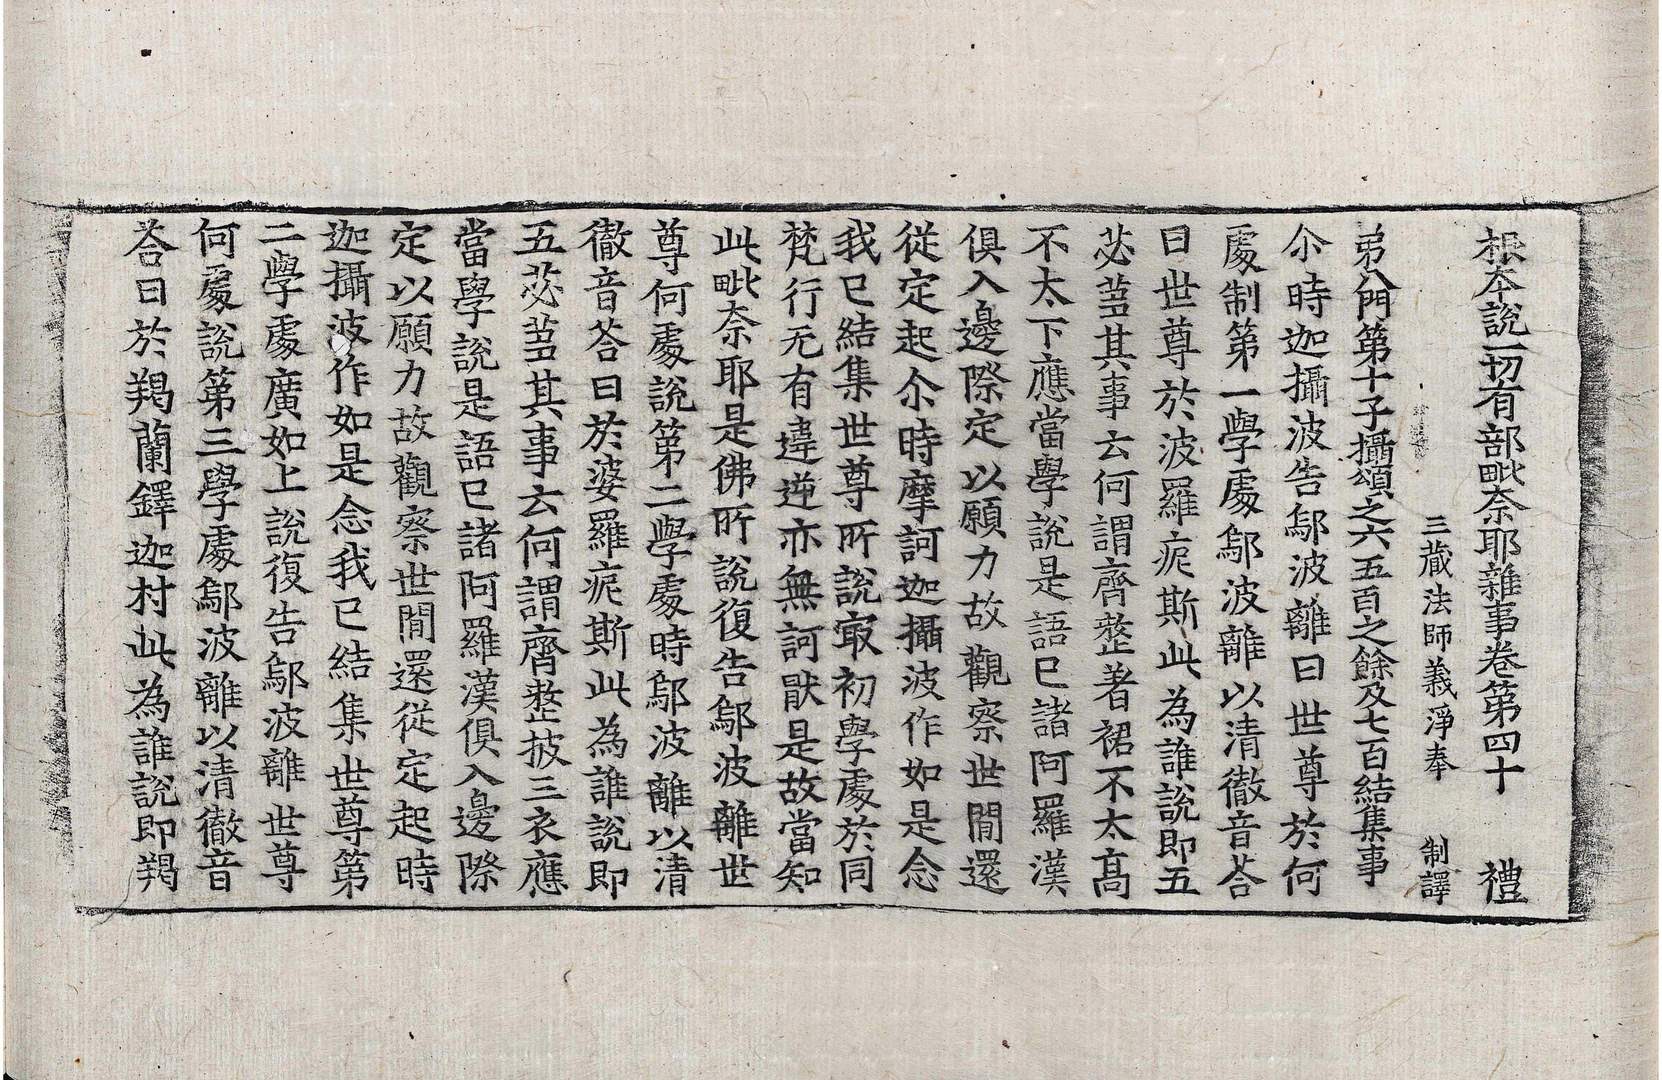 根本說一切有部毗奈耶雜事卷第四十 禮
三藏法師義淨奉 制譯
弟八門第十子攝頌之六五百之餘及七百結集事
尒時迦攝波告鄔波離曰世尊於何
處制第一學處鄔波離以清徹音荅
曰世尊於波羅痆斯此為誰說即五
苾蒭其事云何謂齊整著裙不太高
不太下應當學說是語已諸阿羅漢
俱入邊際定以願力故觀察世間還
從定起尒時摩訶迦攝波作如是念
我已結集世尊所說㝡初學處於同
梵行无有違逆亦無訶猒是故當知
此毗奈耶是佛所說復告鄔波離世
尊何處說第二學處時鄔波離以清
徹音荅曰於婆羅痆斯此為誰說即
五苾蒭其事云何謂齊整披三衣應
當學說是語已諸阿羅漢俱入邊際
定以願力故觀察世間還從定起時
迦攝波作如是念我已結集世尊第
二學處廣如上說復告鄔波離世尊
何處說第三學處鄔波離以清徹音
荅曰於羯蘭鐸迦村此為誰說即羯